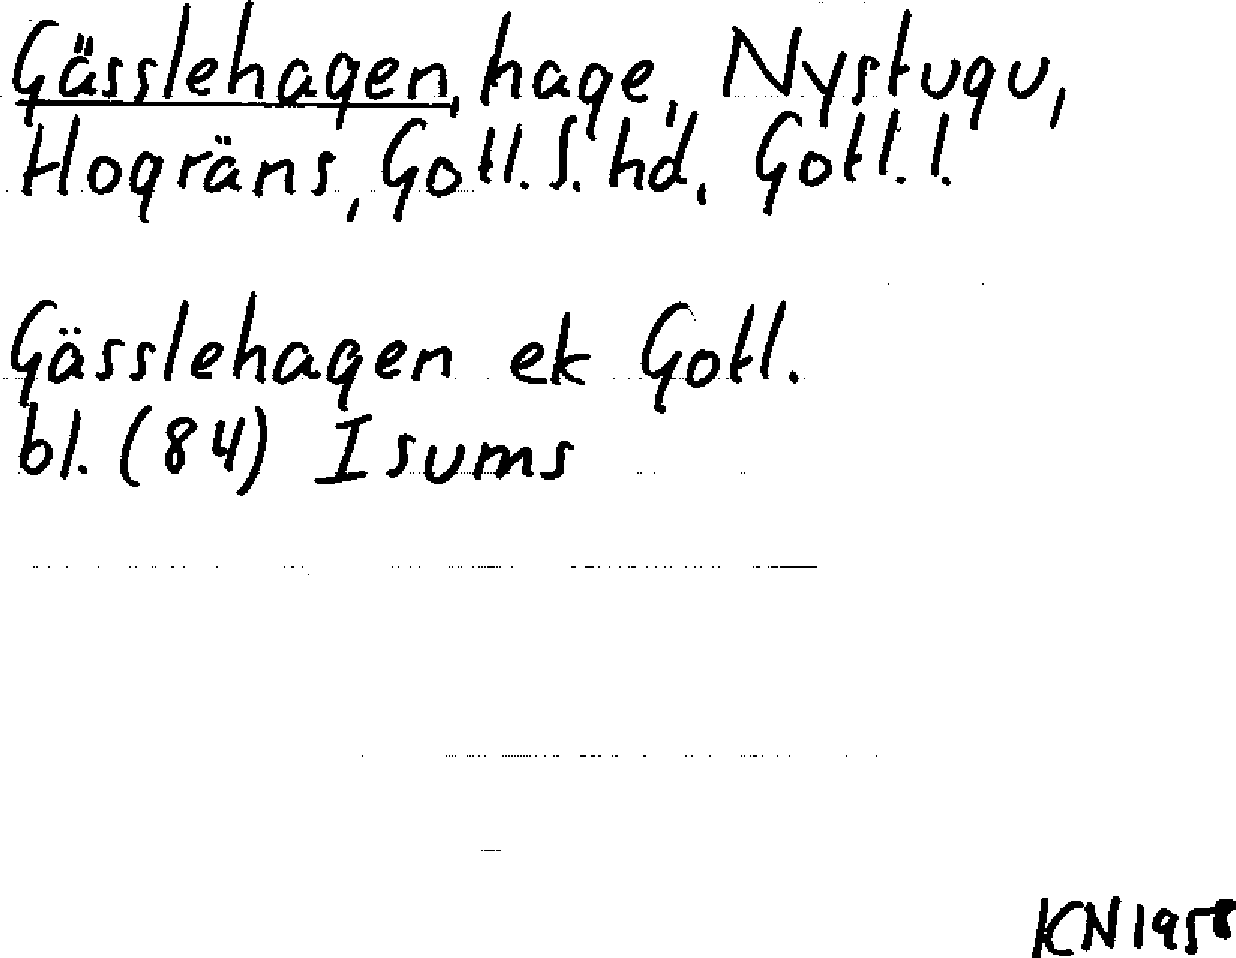 Gässlehagen, hage, Nystugu,
Hogräns, Gotl. S. hd. Gotl. l.
Gässlehagen ek Gotl.
bl. (84) Isums
KN 1958